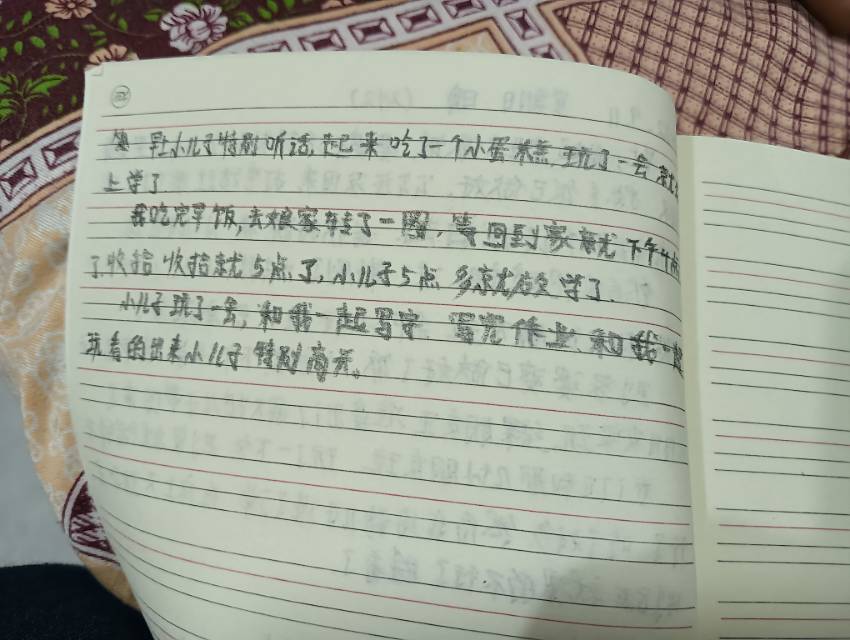 早上小儿子特别听话,起来吃了一个小蛋糕,玩了一会就
上学了
我吃完早饭,去娘家转了一圈,等回到家就下午4点
了,收拾收拾就5点了,小儿子5点多就放学了.
小儿子玩了一会,和我一起写字,写完作业,和我一起
玩看的出来小儿子特别高兴。